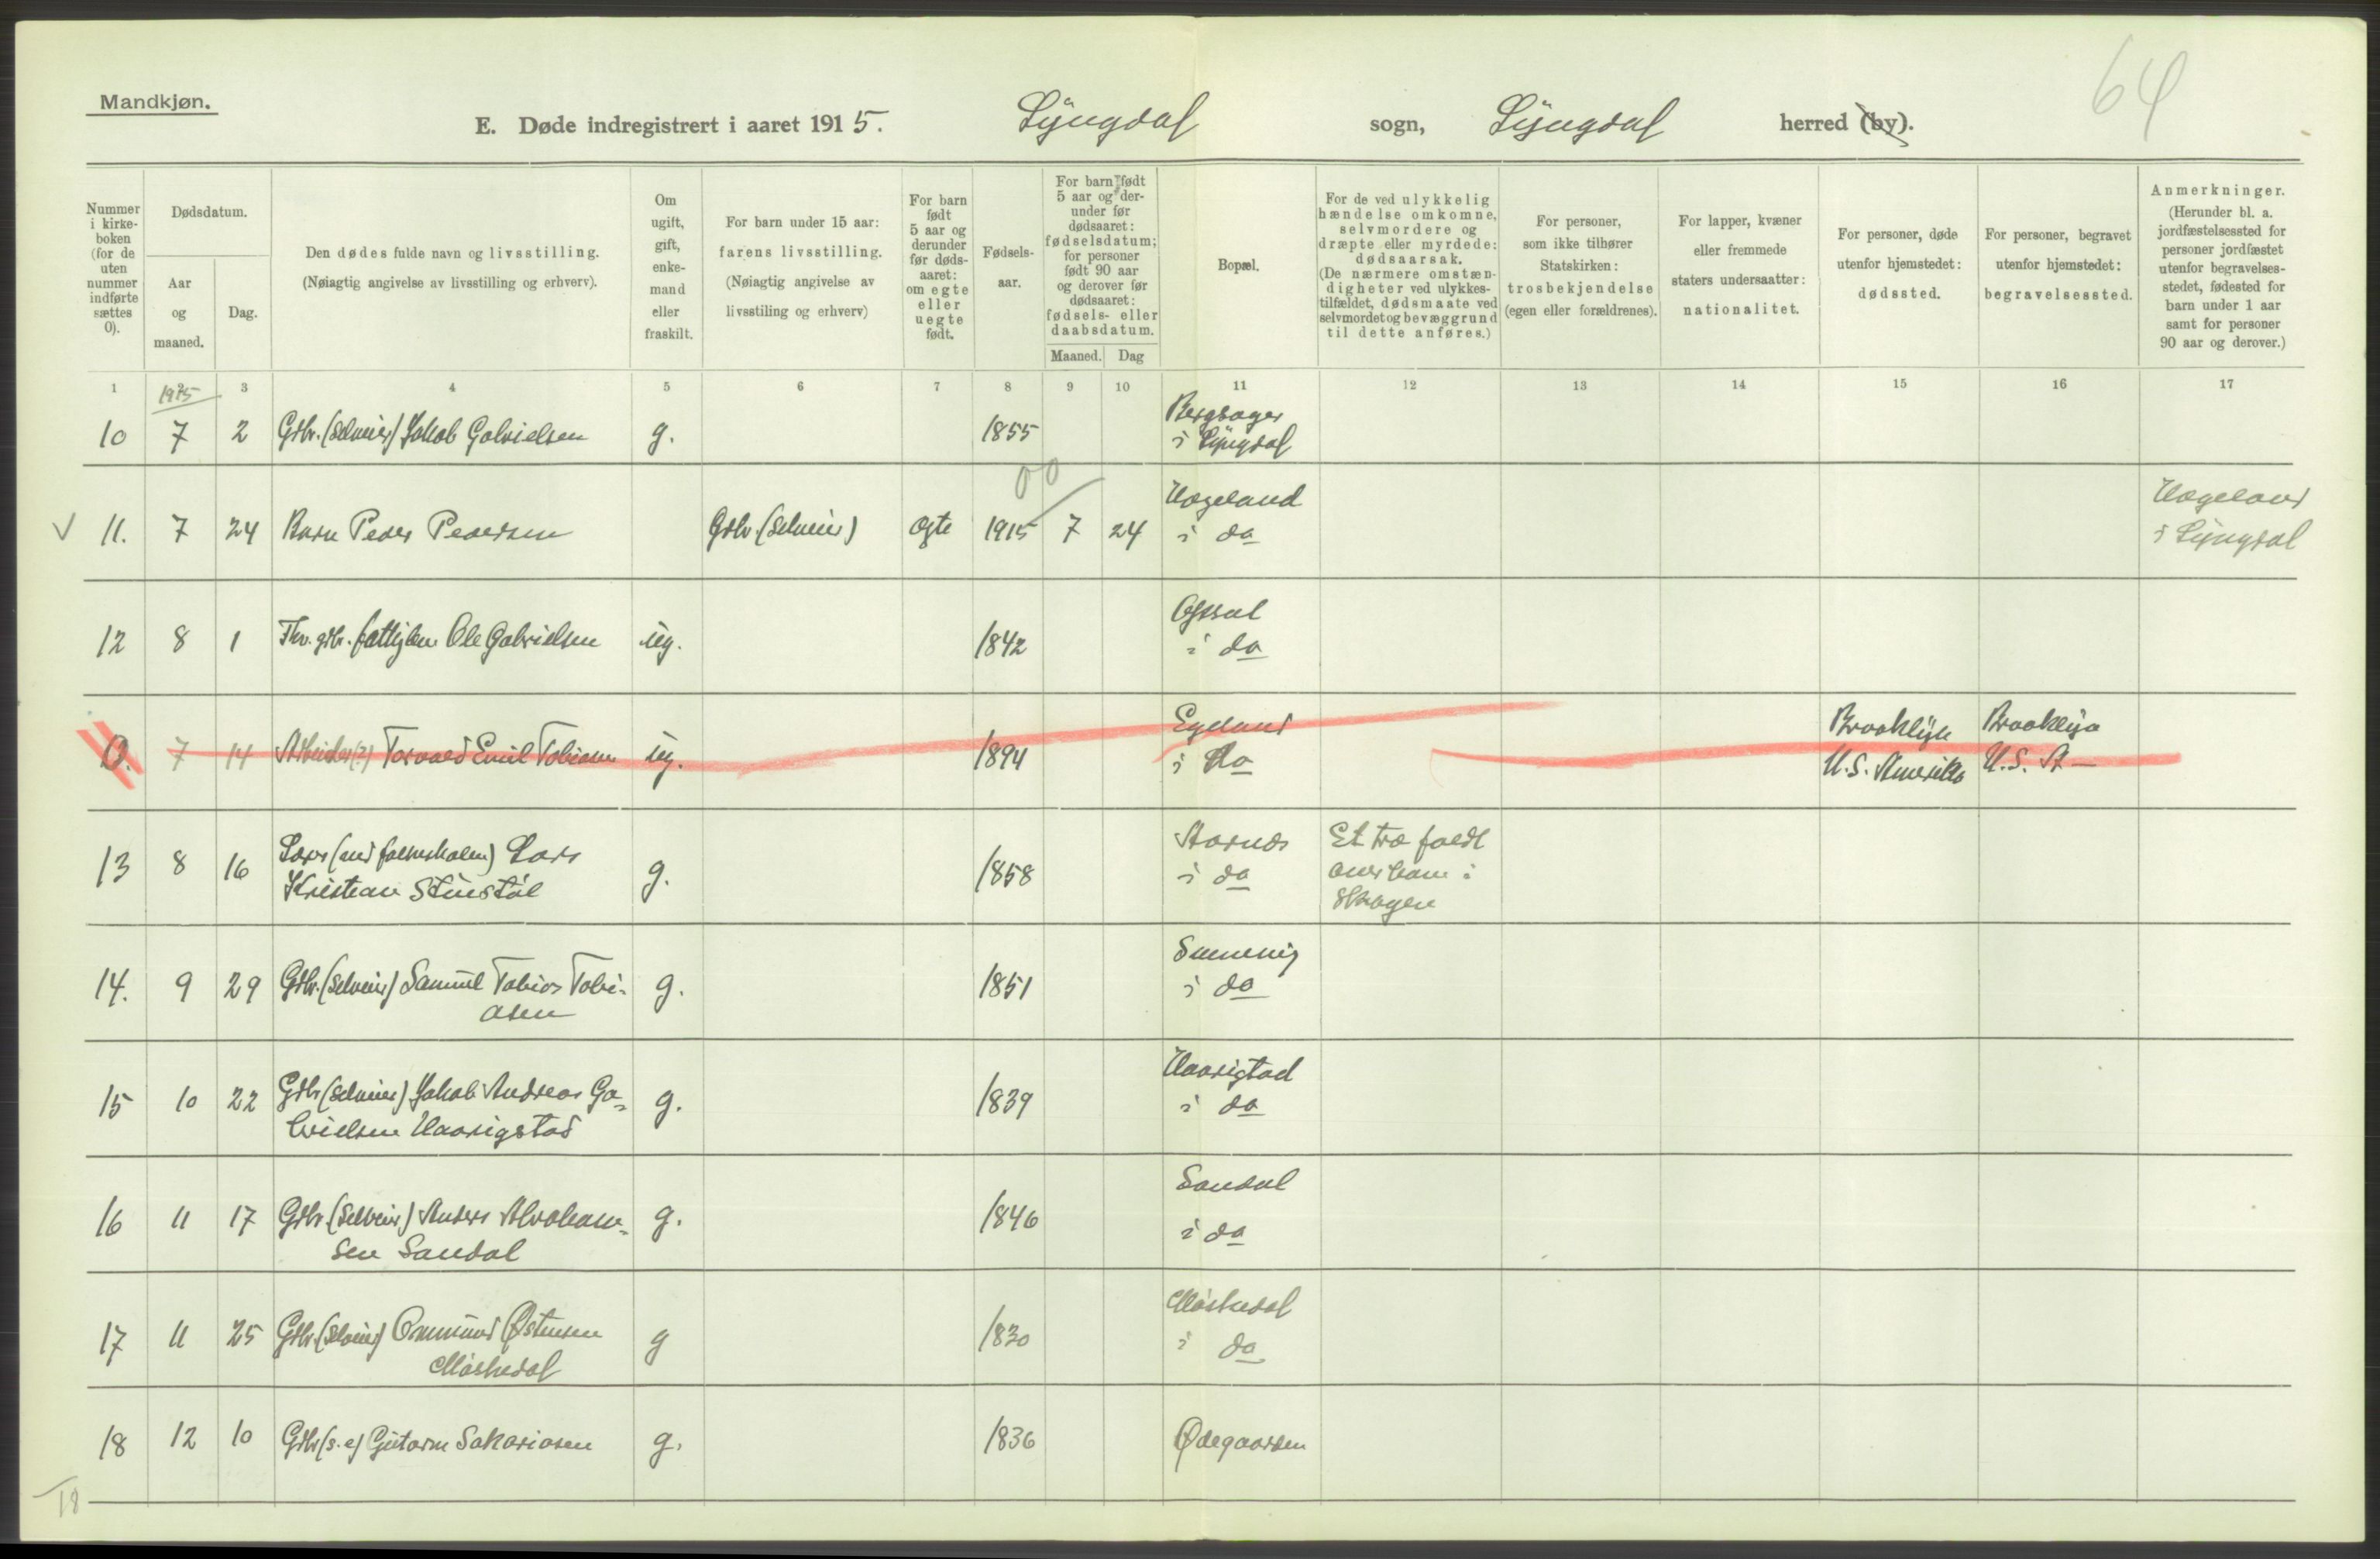 Mandkjøn.
64
E. Døde indregistrert i aaret 1915. Lyngdal sogn, Lyngdal herred (by).
Nummer i kirke-boken (for de uten nummer indførte sættes 0).
Dødsdatum.
Aar og maaned.
Dag.
Den dødes fulde navn og livsstilling.
(Nøiagtig angivelse av livsstilling og erhverv).
Om ugift, gift, enke-mand eller fraskilt.
For barn under 15 aar: farens livsstilling.
(Nøiagtig angivelse av livsstiling og erhverv)
For barn født 5 aar og derunder før døds-aaret: om egte eller uegte født.
Fødsels-aar.
For barn født 5 aar og der-under før dødsaaret: fødselsdatum; for personer født 90 aar og derover før dødsaaret: fødsels- eller daabsdatum.
Maaned. Dag
Bopæl.
For de ved ulykkelig hændelse omkomne, selvmordere og dræpte eller myrdede: dødsaarsak.
(De nærmere omstæn-digheter ved ulykkes-tilfældet, dødsmaate ved selvmordet og bevæggrund til dette anføres.)
For personer, som ikke tilhører Statskirken: trosbekjendelse (egen eller forældrenes).
For lapper, kvæner eller fremmede staters undersaatter: nationalitet.
For personer, døde utenfor hjemstedet: dødssted.
For personer, begravet utenfor hjemstedet: begravelsessted.
Anmerkninger.
(Herunder bl. a. jordfæstelsessted for personer jordfæstet utenfor begravelses-stedet, fødested for barn under 1 aar samt for personer 90 aar og derover.)
1 2 3 4 5 6 7 8 9 10 11 12 13 14 15 16 17
1915
10 7 2 Gbr. (selveier) Jakob Gabrielsen g. 1855 Bergsager
i Lyngdal
00
11. 7 24 Barn Peder Pedersen Gbr (selveier) egte 1915 7 24 Hægeland
i do
Hægeland
i Lyngdal
12 8 1 Fhv. gbr. fattiglem Ole Gabrielsen ug. 1842
i do
0. 7 14 Arbeider(?) Torvald Emil Tobiasen ug. 1894 Egeland
i do
Brooklyn
U.S. Amerika
Brooklyn
U.S. A—
13 8 16 Lærer (ved folkeskolen) Lars
Kristian Stuestøl g. 1858
i do
Et træ faldt
over ham i
skogen
14. 9 29 Gbr. (selveier) Samuel Tobias Tobi-
asen g. 1851
i do
15 10 22 Gbr (selveier) Jakob Andreas Ga-
brielsen Haarigstad g. 1839 Haarigstad
i do
16 11 17 Gbr (selveier) Anders Abraham-
sen Sandal g. 1846 Sandal
i do
17 11 25 Gbr. (selveier) Ommund Østensen
Møskedal g 1830 Møskedal
i do
18 12 10 Gbr (s.e) Gutorm Sakariasen g. 1836 Ødegaarden
18